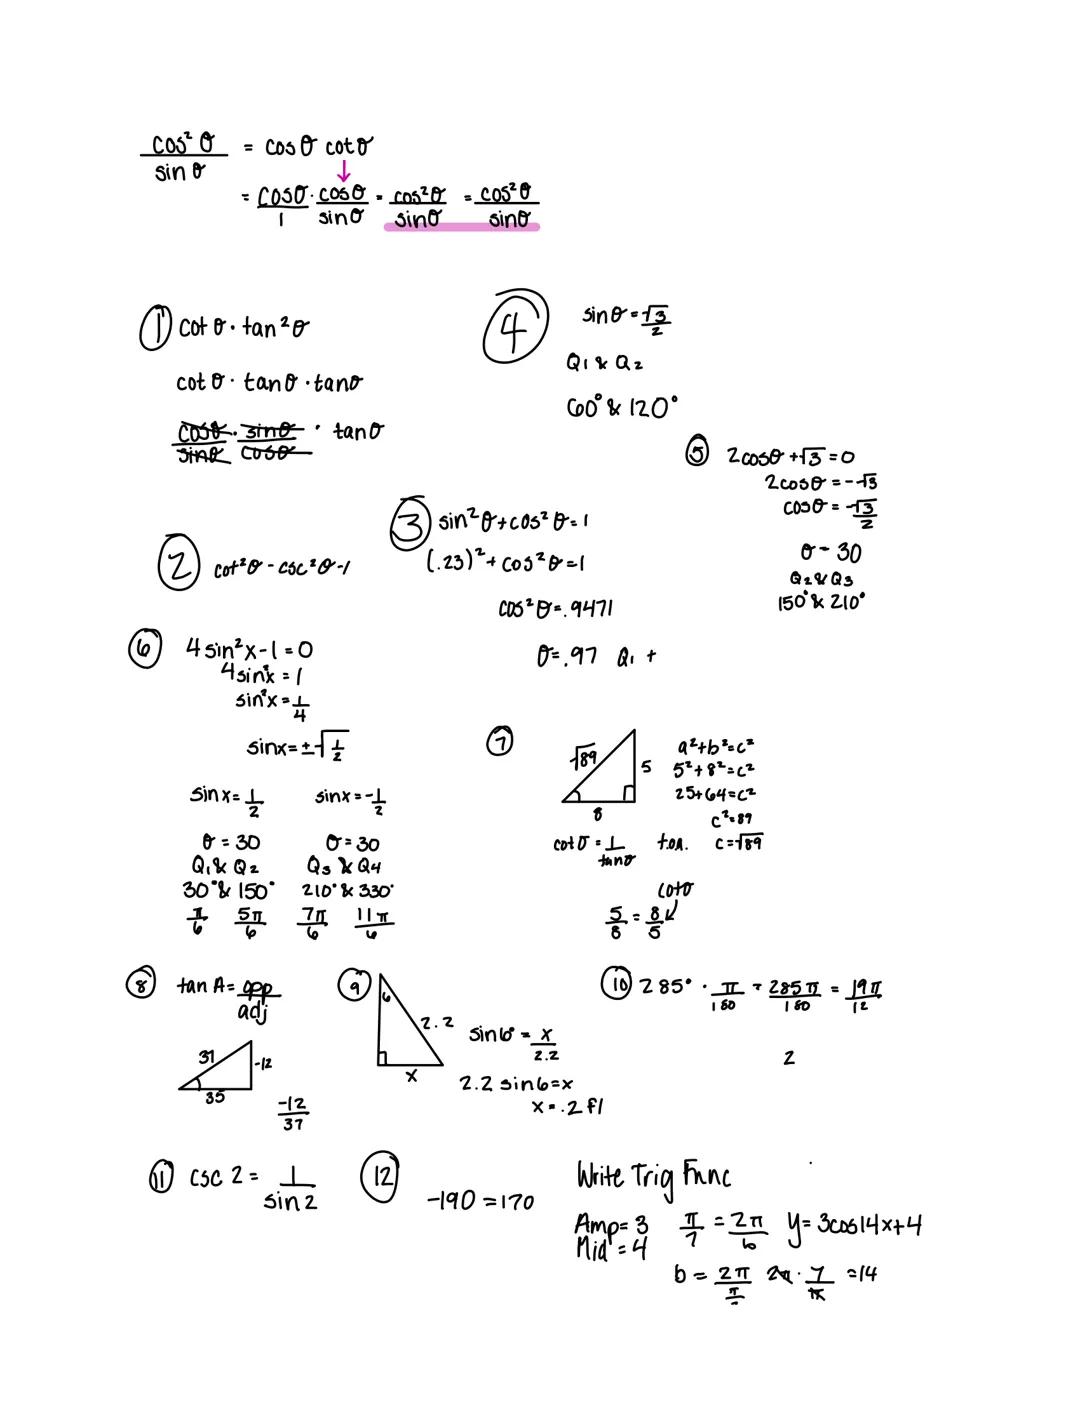 cos²θ/sinθ = cosθ cotθ
= cosθ/1 · cosθ/sinθ = cos²θ/sinθ = cos²θ/sinθ
① cotθ · tan²θ
cotθ · tanθ · tanθ
cosθ/sinθ · sinθ/cosθ · tanθ
④ sinθ = √3/2
Q1 & Q2
60° & 120°
⑤ 2cosθ + √3 = 0
2cosθ = -√3
cosθ = -√3/2
θ = 30
Q2 & Q3
150° & 210°
② cot²θ - csc²θ - 1
③ sin²θ + cos²θ = 1
(.23)² + cos²θ = 1
cos²θ = .9471
θ = .97 Q1 +
⑥ 4sin²x - 1 = 0
4sin²x = 1
sin²x = 1/4
sinx = ±√1/2
sinx = 1/2 sinx = -1/2
θ = 30 θ = 30
Q1 & Q2 Q3 & Q4
30° & 150° 210° & 330°
π/6 5π/6 7π/6 11π/6
⑦ √89 5 8
a² + b² = c²
5² + 8² = c²
25 + 64 = c²
c² = 89
c = √89
cotθ = 1/tanθ t.o.a.
cotθ
5/8 = 8/5
⑧ tan A = opp/adj
37 -12
35
-12/37
⑨ 6 2.2 x
sin6° = x/2.2
2.2 sin6 = x
x = .2 ft
⑩ 285° · π/180 = 285π/180 = 19π/12
2
⑪ csc 2 = 1/sin2
⑫ -190 = 170
Write Trig Func
Amp = 3
Mid = 4
π/7 = 2π/b y = 3cos14x + 4
b = 2π/(π/7) 2π · 7/π = 14